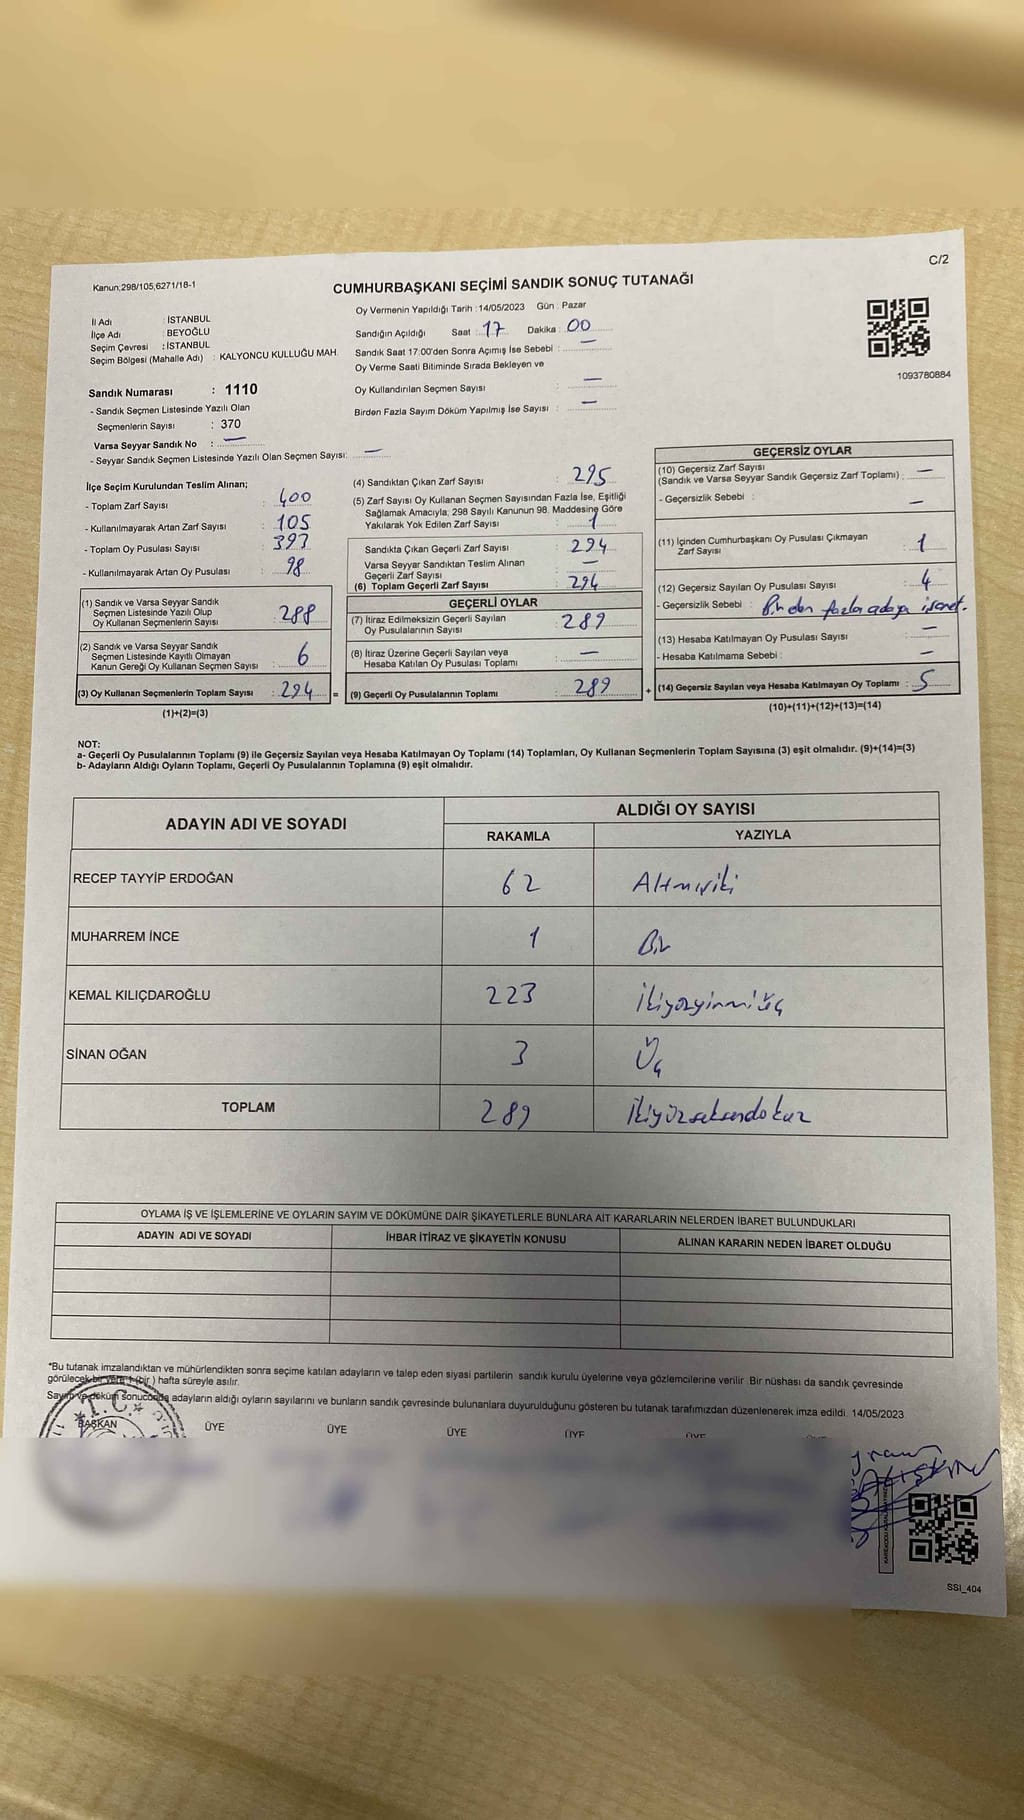 C/2
Kanun:298/105,6271/18-1
CUMHURBAŞKANI SEÇİMİ SANDIK SONUÇ TUTANAĞI
Oy Vermenin Yapıldığı Tarih :14/05/2023 Gün : Pazar
İl Adı : İSTANBUL
İlçe Adı : BEYOĞLU
Seçim Çevresi : İSTANBUL
Seçim Bölgesi (Mahalle Adı) : KALYONCU KULLUĞU MAH.
Sandığın Açıldığı Saat : 17 Dakika : 00
Sandık Saat 17:00'den Sonra Açımış İse Sebebi : —
Oy Verme Saati Bitiminde Sırada Bekleyen ve
Oy Kullandırılan Seçmen Sayısı : —
Birden Fazla Sayım Döküm Yapılmış İse Sayısı : —
1093780884
Sandık Numarası : 1110
- Sandık Seçmen Listesinde Yazılı Olan
Seçmenlerin Sayısı : 370
Varsa Seyyar Sandık No : —
- Seyyar Sandık Seçmen Listesinde Yazılı Olan Seçmen Sayısı: —
İlçe Seçim Kurulundan Teslim Alınan;
- Toplam Zarf Sayısı : 400
- Kullanılmayarak Artan Zarf Sayısı : 105
- Toplam Oy Pusulası Sayısı : 393
- Kullanılmayarak Artan Oy Pusulası : 98
(1) Sandık ve Varsa Seyyar Sandık
Seçmen Listesinde Yazılı Olup
Oy Kullanan Seçmenlerin Sayısı : 288
(2) Sandık ve Varsa Seyyar Sandık
Seçmen Listesinde Kayıtlı Olmayan
Kanun Gereği Oy Kullanan Seçmen Sayısı : 6
(3) Oy Kullanan Seçmenlerin Toplam Sayısı : 294 =
(1)+(2)=(3)
(4) Sandıktan Çıkan Zarf Sayısı : 295
(5) Zarf Sayısı Oy Kullanan Seçmen Sayısından Fazla İse, Eşitliği
Sağlamak Amacıyla; 298 Sayılı Kanunun 98. Maddesine Göre
Yakılarak Yok Edilen Zarf Sayısı : 1
Sandıkta Çıkan Geçerli Zarf Sayısı : 294
Varsa Seyyar Sandıktan Teslim Alınan
Geçerli Zarf Sayısı : —
(6) Toplam Geçerli Zarf Sayısı : 294
GEÇERLİ OYLAR
(7) İtiraz Edilmeksizin Geçerli Sayılan
Oy Pusulalarının Sayısı : 289
(8) İtiraz Üzerine Geçerli Sayılan veya
Hesaba Katılan Oy Pusulası Toplamı : —
(9) Geçerli Oy Pusulalarının Toplamı : 289 +
GEÇERSİZ OYLAR
(10) Geçersiz Zarf Sayısı
(Sandık ve Varsa Seyyar Sandık Geçersiz Zarf Toplamı) : —
- Geçersizlik Sebebi : —
(11) İçinden Cumhurbaşkanı Oy Pusulası Çıkmayan
Zarf Sayısı : 1
(12) Geçersiz Sayılan Oy Pusulası Sayısı : 4
- Geçersizlik Sebebi : Birden fazla adaya işaret.
(13) Hesaba Katılmayan Oy Pusulası Sayısı : —
- Hesaba Katılmama Sebebi : —
(14) Geçersiz Sayılan veya Hesaba Katılmayan Oy Toplamı : 5
(10)+(11)+(12)+(13)=(14)
NOT:
a- Geçerli Oy Pusulalarının Toplamı (9) ile Geçersiz Sayılan veya Hesaba Katılmayan Oy Toplamı (14) Toplamları, Oy Kullanan Seçmenlerin Toplam Sayısına (3) eşit olmalıdır. (9)+(14)=(3)
b- Adayların Aldığı Oyların Toplamı, Geçerli Oy Pusulalarının Toplamına (9) eşit olmalıdır.
ADAYIN ADI VE SOYADI ALDIĞI OY SAYISI
RAKAMLA YAZIYLA
RECEP TAYYİP ERDOĞAN 62 Altmışiki
MUHARREM İNCE 1 Bir
KEMAL KILIÇDAROĞLU 223 İkiyüzyirmiüç
SİNAN OĞAN 3 Üç
TOPLAM 289 İkiyüzseksendokuz
OYLAMA İŞ VE İŞLEMLERİNE VE OYLARIN SAYIM VE DÖKÜMÜNE DAİR ŞİKAYETLERLE BUNLARA AİT KARARLARIN NELERDEN İBARET BULUNDUKLARI
ADAYIN ADI VE SOYADI İHBAR İTİRAZ VE ŞİKAYETİN KONUSU ALINAN KARARIN NEDEN İBARET OLDUĞU
*Bu tutanak imzalandıktan ve mühürlendikten sonra seçime katılan adayların ve talep eden siyasi partilerin sandık kurulu üyelerine veya gözlemcilerine verilir .Bir nüshası da sandık çevresinde
görülecek bir yere 1 (bir ) hafta süreyle asılır.
Sayım ve döküm sonucunda adayların aldığı oyların sayılarını ve bunların sandık çevresinde bulunanlara duyurulduğunu gösteren bu tutanak tarafımızdan düzenlenerek imza edildi. 14/05/2023
T.C.
BAŞKAN ÜYE ÜYE ÜYE ÜYE ÜYE
SSI_404